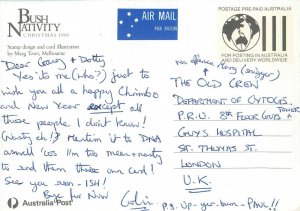 BUSH
NATIVITY
CHRISTMAS 1994
Stamp design and card illustration
by Marg Towt, Melbourne
AIR MAIL
PAR AVION
POSTAGE PRE-PAID AUSTRALIA
FOR POSTING IN AUSTRALIA
AND DELIVERY WORLDWIDE.
Dear Gary + Dotty
Yes its me (who?) just to
wish you all a happy Chimbo
and New Year except all
those people I don't know!
(Nearly eh!) Mention it to DNA
aswell 'cos I'm too mean + nasty
to send them there own card!
See you soon - ISH!
Bye for Now
Colin
no offence Mary (snigger)
THE OLD CROW
DEPARTMENT OF CYTOGS.
P.R.U. 8th FLOOR GUYS TOWER
GUYS HOSPITAL
ST. THOMAS ST.
LONDON
U.K.
P.S. Up-yer-bum-PAUL!!
Australia Post